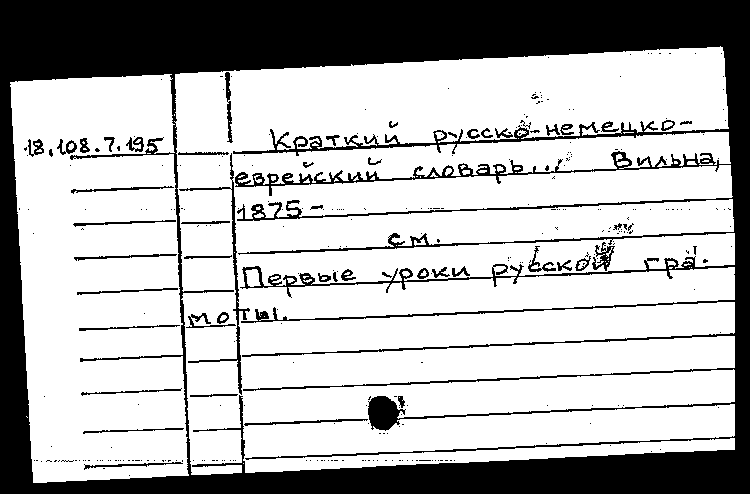 18.108.7.195
Краткий русско-немецко-
еврейский словарь... Вильна,
1875 -
см.
Первые уроки русской гра-
моты.